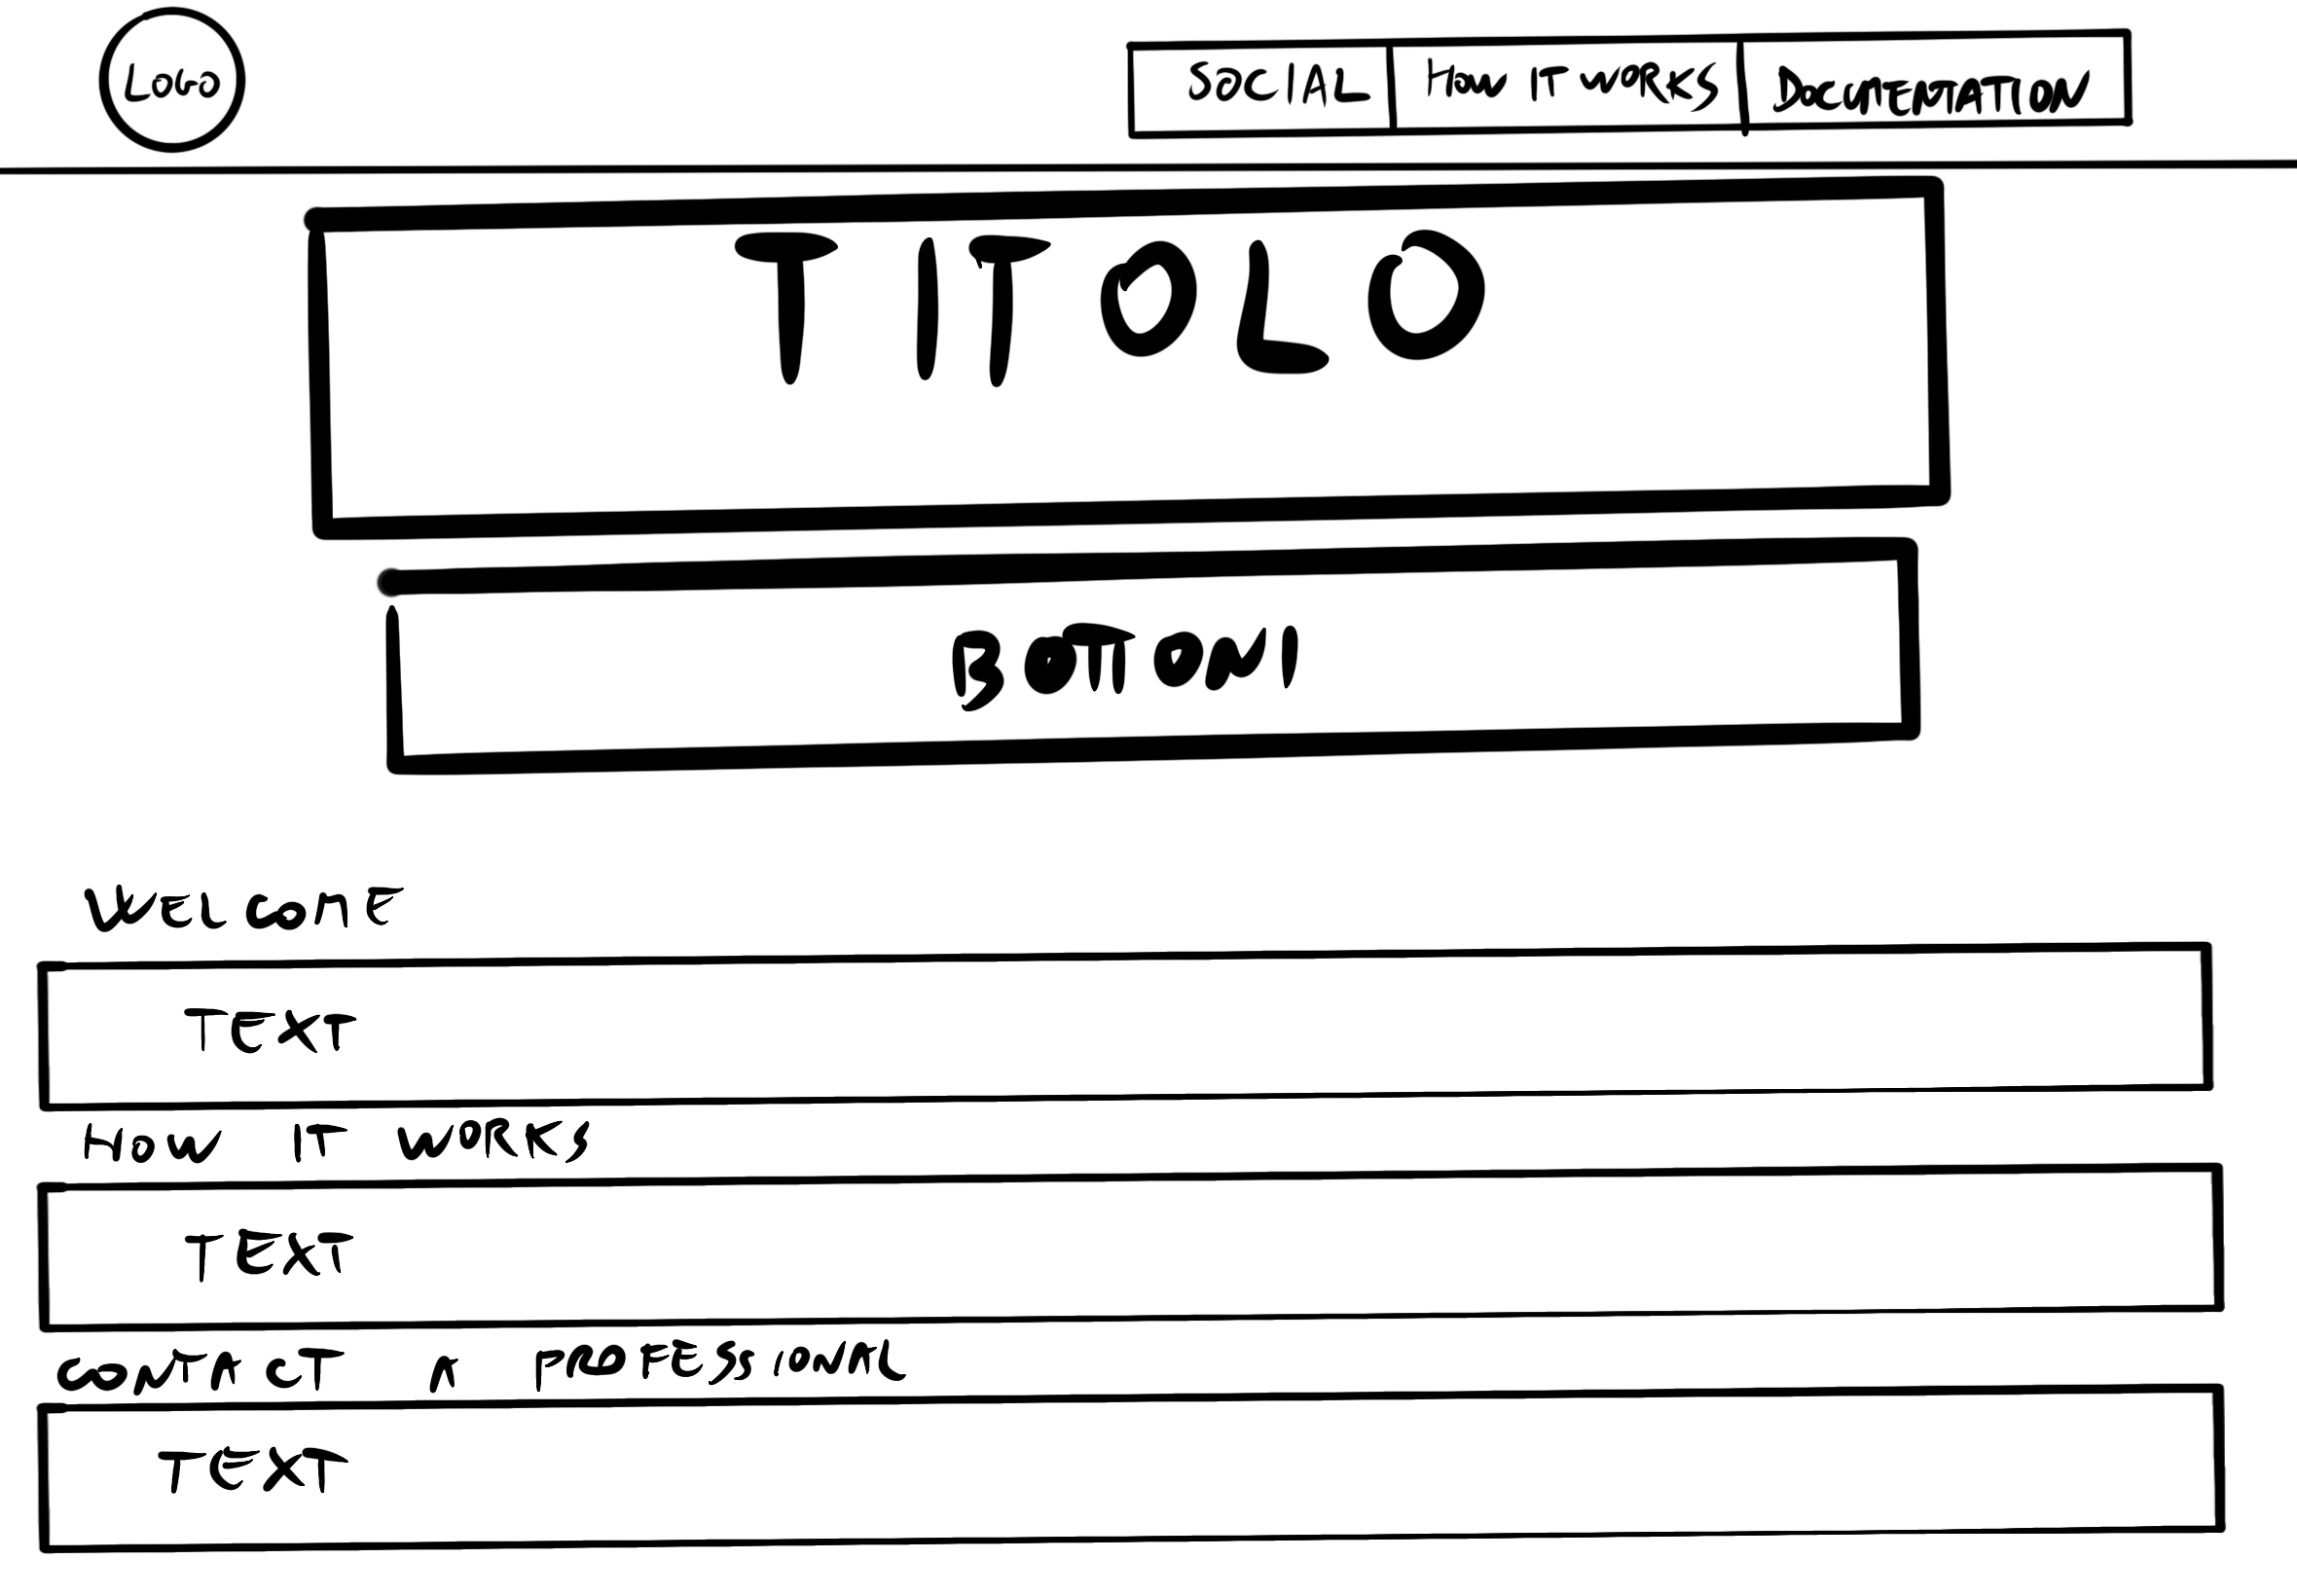 LOGO
SOCIAL
HOW IT WORKS
DOCUMENTATION
TITOLO
BOTTONI
WELCOME
TEXT
HOW IT WORKS
TEXT
CONTACT A PROFESSIONAL
TEXT